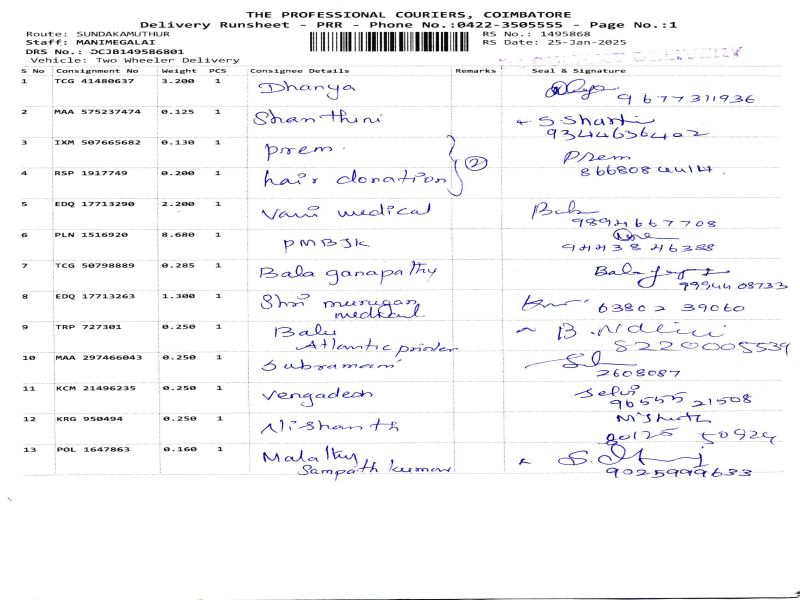 THE PROFESSIONAL COURIERS, COIMBATORE
Delivery Runsheet - PRR - Phone No.:0422-3505555 - Page No.:1
Route: SUNDAKAMUTHUR RS No.: 1495868
Staff: MANIMEGALAI RS Date: 25-Jan-2025
DRS No.: DCJB149586801
Vehicle: Two Wheeler Delivery
S No Consignment No Weight PCS Consignee Details Remarks Seal & Signature
1 TCG 41480637 3.200 1 Dhanya
9677311936
2 MAA 575237474 0.125 1 Shanthini S. Shanti
9344636402
3 IXM 507665682 0.130 1 prem. Prem
4 RSP 1917749 0.200 1 hair donation 2
5 EDQ 17713290 2.200 1 Vani medical
9894667708
6 PLN 1516920 8.680 1 PMBJK
9443846388
7 TCG 50798889 0.285 1 Bala ganapathy
99944 08733
8 EDQ 17713263 1.300 1 Shri murugan medical 63802 39060
9 TRP 727301 0.250 1 Balu
Atlantic printer 8220005539
10 MAA 297466043 0.250 1 Subramani
2608087
11 KCM 21496235 0.250 1 Vengadesh Selvi
96555 21508
12 KRG 950494 0.250 1 Nishanth
80125 50924
13 POL 1647863 0.160 1 Malathy
Sampath kumar 9025999633